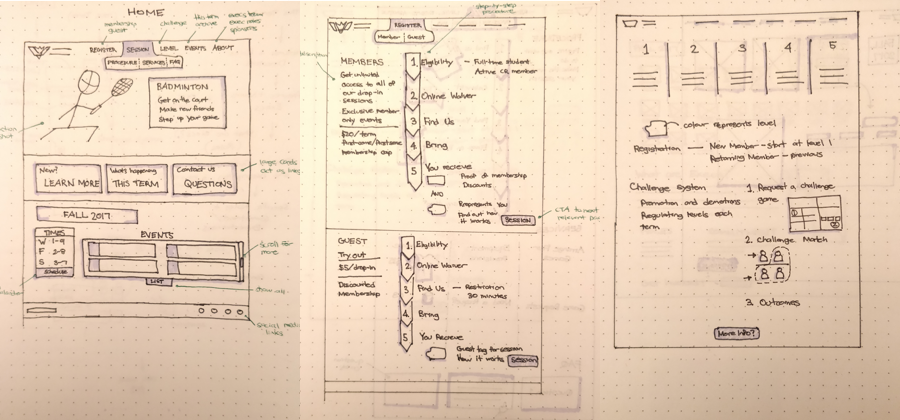 HOME
membership
guest
challenge
REGISTER SESSION LEVEL EVENTS ABOUT
PROCEDURE SERVICES FAQ
BADMINTON
Get on the court
Make new friends
Step up your game
New?
LEARN MORE
What's happening
THIS TERM
Contact us
QUESTIONS
FALL 2017
TIMES
W 1-9
F 2-8
S 3-7
Schedule
EVENTS
LIST
Scroll for
more
social media
links
REGISTER
Member Guest
step-by-step
procedure
MEMBERS
Get unlimited
access to all of
our drop-in
sessions
Exclusive member
only events
$20/term
membership cap
1. Eligibility - Full-time student
Active CR member
2. Online Waiver
3 Find Us
4. Bring
5 You recieve
Proof of membership
Discounts
AND
Represents You
Find out how
it works SESSION
CTA to next
GUEST
Try out
$5/drop-in
Discounted
Membership
1. Eligibility
2. Online Waiver
3 Find Us - Registration
30 minutes
4. Bring
5. You Recieve
Guest tag for session
How it works Session
1 2 3 4 5
colour represents level
Registration - New Member - start at level 1
Returning Member - previous
Challenge System
Promotion and demotions
Regulating levels each
term
1. Request a challenge
game
2. Challenge Match
3. Outcomes
More Info?